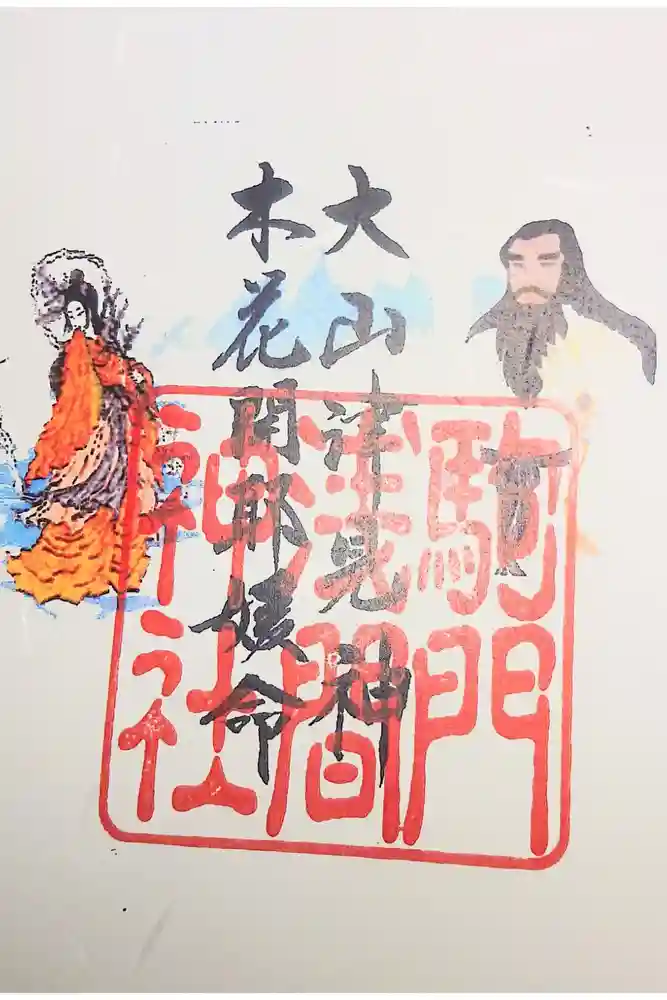 大山津見神
木花開耶媛命
駒門
浅間
神社